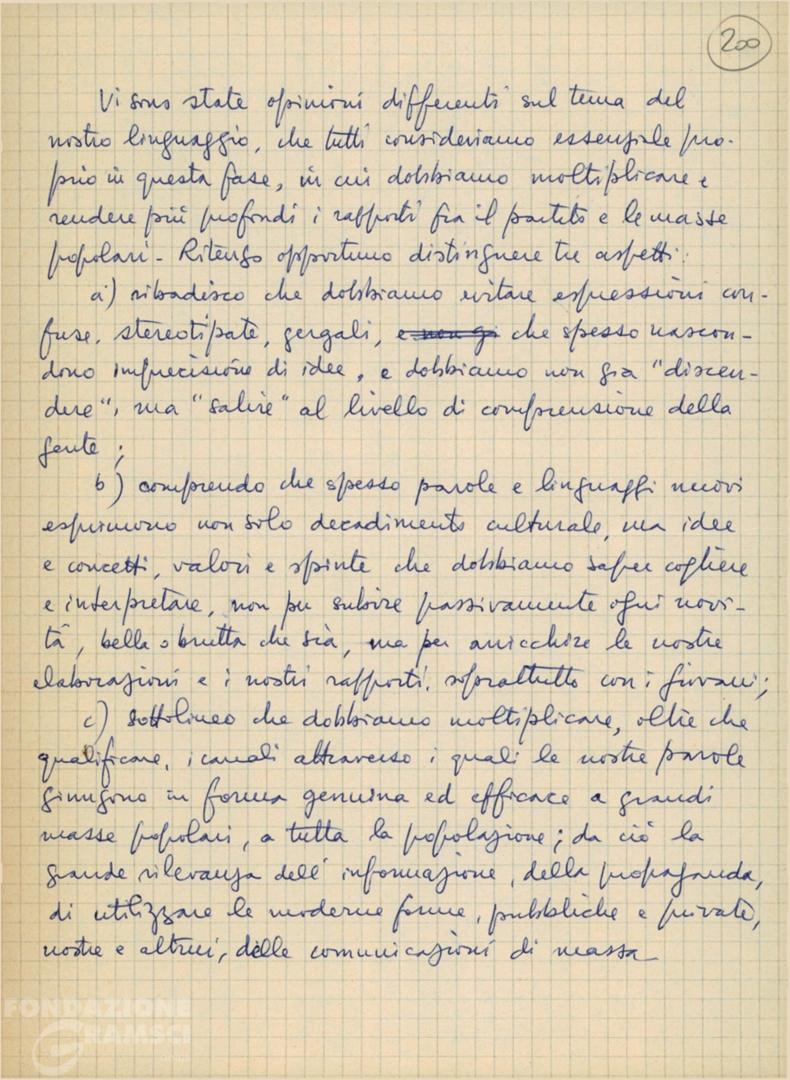 200
Vi sono state opinioni differenti sul tema del
nostro linguaggio, che tutti consideriamo essenziale pro-
prio in questa fase, in cui dobbiamo moltiplicare e
rendere più profondi i rapporti fra il partito e le masse
popolari - Ritengo opportuno distinguere tre aspetti:
a) ribadisco che dobbiamo evitare espressioni con-
fuse, stereotipate, gergali, e non gi che spesso nascon-
dono imprecisione di idee, e dobbiamo non già "discen-
dere", ma "salire" al livello di comprensione della
gente;
b) comprendo che spesso parole e linguaggi nuovi
esprimono non solo decadimento culturale, ma idee
e concetti, valori e spinte che dobbiamo saper cogliere
e interpretare, non per subire passivamente ogni novi-
tà, bella o brutta che sia, ma per arricchire le nostre
elaborazioni e i nostri rapporti, soprattutto con i giovani;
c) sottolineo che dobbiamo moltiplicare, oltre che
qualificare, i canali attraverso i quali le nostre parole
giungono in forma genuina ed efficace a grandi
masse popolari, a tutta la popolazione; da ciò la
grande rilevanza dell'informazione, della propaganda,
di utilizzare le moderne forme, pubbliche e private,
nostre e altrui, delle comunicazioni di massa
FONDAZIONE
GRAMSCI